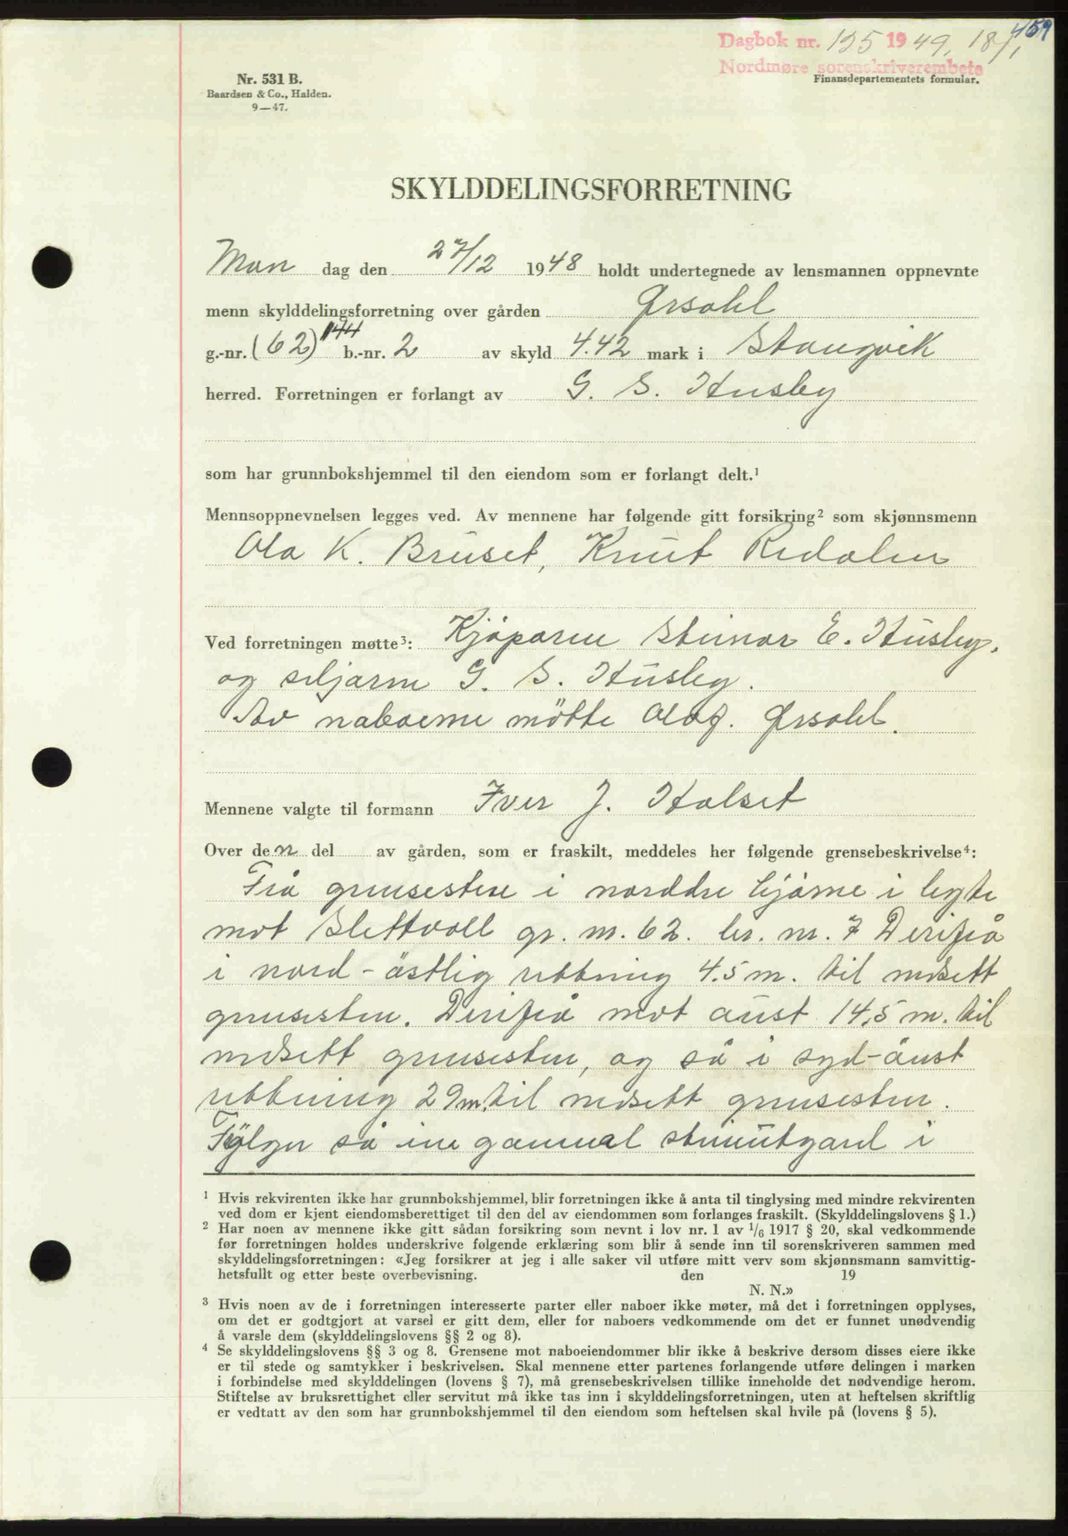 459
Dagbok nr. 125 1949, 18/1,
Nordmøre sorenskriverembete
Nr. 531 B.
Baardsen & Co., Halden.
9—47.
Finansdepartementets formular.
SKYLDDELINGSFORRETNING
Man dag den 27/12 1948 holdt undertegnede av lensmannen oppnevnte
menn skylddelingsforretning over gården Ørsahl
g.-nr. (62) 144 b.-nr. 2 av skyld 4.42 mark i Stangvik
herred. Forretningen er forlangt av G. S. Husby
som har grunnbokshjemmel til den eiendom som er forlangt delt.¹
Mennsoppnevnelsen legges ved. Av mennene har følgende gitt forsikring² som skjønnsmenn
Ola K. Bruset, Knut Redalen
Ved forretningen møtte³: Kjøparen Steinar E. Husby,
og seljaren G. S. Husby.
Av naboerne møtte Olaf. Ørsahl.
Mennene valgte til formann Iver J. Halset
Over den del av gården, som er fraskilt, meddeles her følgende grensebeskrivelse⁴:
Frå grensestene i norddre hjørne i
mot Slettvoll gr. nr. 62. br. nr. 7 Derifrå
i nord-östlig retning 4.5 m. til nedsett
grensesten. Derifrå mot aust 14,5 m. til
nedsett grensesten, og så i syd-aust
retning 29 m. til nedsett grensesten.
Følger så ein gammal steinutgard i
¹ Hvis rekvirenten ikke har grunnbokshjemmel, blir forretningen ikke å anta til tinglysing med mindre rekvirenten
ved dom er kjent eiendomsberettiget til den del av eiendommen som forlanges fraskilt. (Skylddelingslovens § 1.)
² Har noen av mennene ikke gitt sådan forsikring som nevnt i lov nr. 1 av 1/6 1917 § 20, skal vedkommende
før forretningen holdes underskrive følgende erklæring som blir å sende inn til sorenskriveren sammen med
skylddelingsforretningen: «Jeg forsikrer at jeg i alle saker vil utføre mitt verv som skjønnsmann samvittig-
hetsfullt og etter beste overbevisning. den 19
N. N.»
³ Hvis noen av de i forretningen interesserte parter eller naboer ikke møter, må det i forretningen opplyses,
om det er godtgjort at varsel er gitt dem, eller for naboers vedkommende om det er funnet unødvendig
å varsle dem (skylddelingslovens §§ 2 og 8).
⁴ Se skylddelingslovens §§ 3 og 8. Grensene mot naboeiendommer blir ikke å beskrive dersom disses eiere ikke
er til stede og samtykker i beskrivelsen. Skal mennene etter partenes forlangende utføre delingen i marken
i forbindelse med skylddelingen (lovens § 7), må grensebeskrivelsen tillike inneholde det nødvendige herom.
Stiftelse av bruksrettighet eller servitut må ikke tas inn i skylddelingsforretningen, uten at heftelsen skriftlig
er vedtatt av den som har grunnbokshjemmel til den eiendom som heftelsen skal hvile på (lovens § 5).